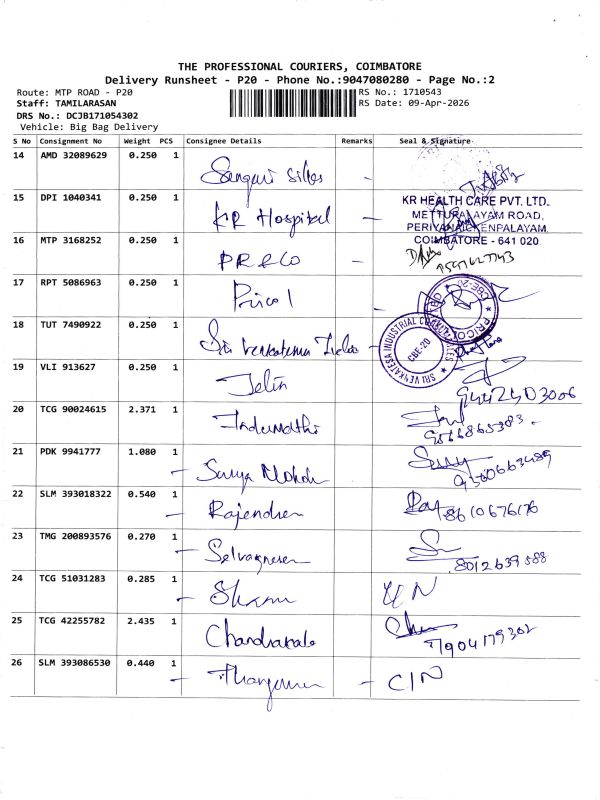 THE PROFESSIONAL COURIERS, COIMBATORE
Delivery Runsheet - P20 - Phone No.:9047080280 - Page No.:2
Route: MTP ROAD - P20
RS No.: 1710543
Staff: TAMILARASAN
RS Date: 09-Apr-2026
DRS No.: DCJB171054302
Vehicle: Big Bag Delivery
S No Consignment No Weight PCS Consignee Details Remarks Seal & Signature
14 AMD 32089629 0.250 1
15 DPI 1040341 0.250 1 KR Hospital
KR HEALTH CARE PVT. LTD.
METTUPALAYAM ROAD,
PERIYANAICKENPALAYAM,
COIMBATORE - 641 020
16 MTP 3168252 0.250 1
17 RPT 5086963 0.250 1 Pricol
PRICOL
CBE-20
18 TUT 7490922 0.250 1 Sri Venkatesa
SRI VENKATESA INDUSTRIAL
CBE-20
19 VLI 913627 0.250 1 Jelin
20 TCG 90024615 2.371 1 Indumathi
9566865383
21 PDK 9941777 1.080 1 Surya
9360663489
22 SLM 393018322 0.540 1 Rajendren
8610676176
23 TMG 200893576 0.270 1
8012639588
24 TCG 51031283 0.285 1
25 TCG 42255782 2.435 1 Chandrakala
7904179302
26 SLM 393086530 0.440 1
C/N